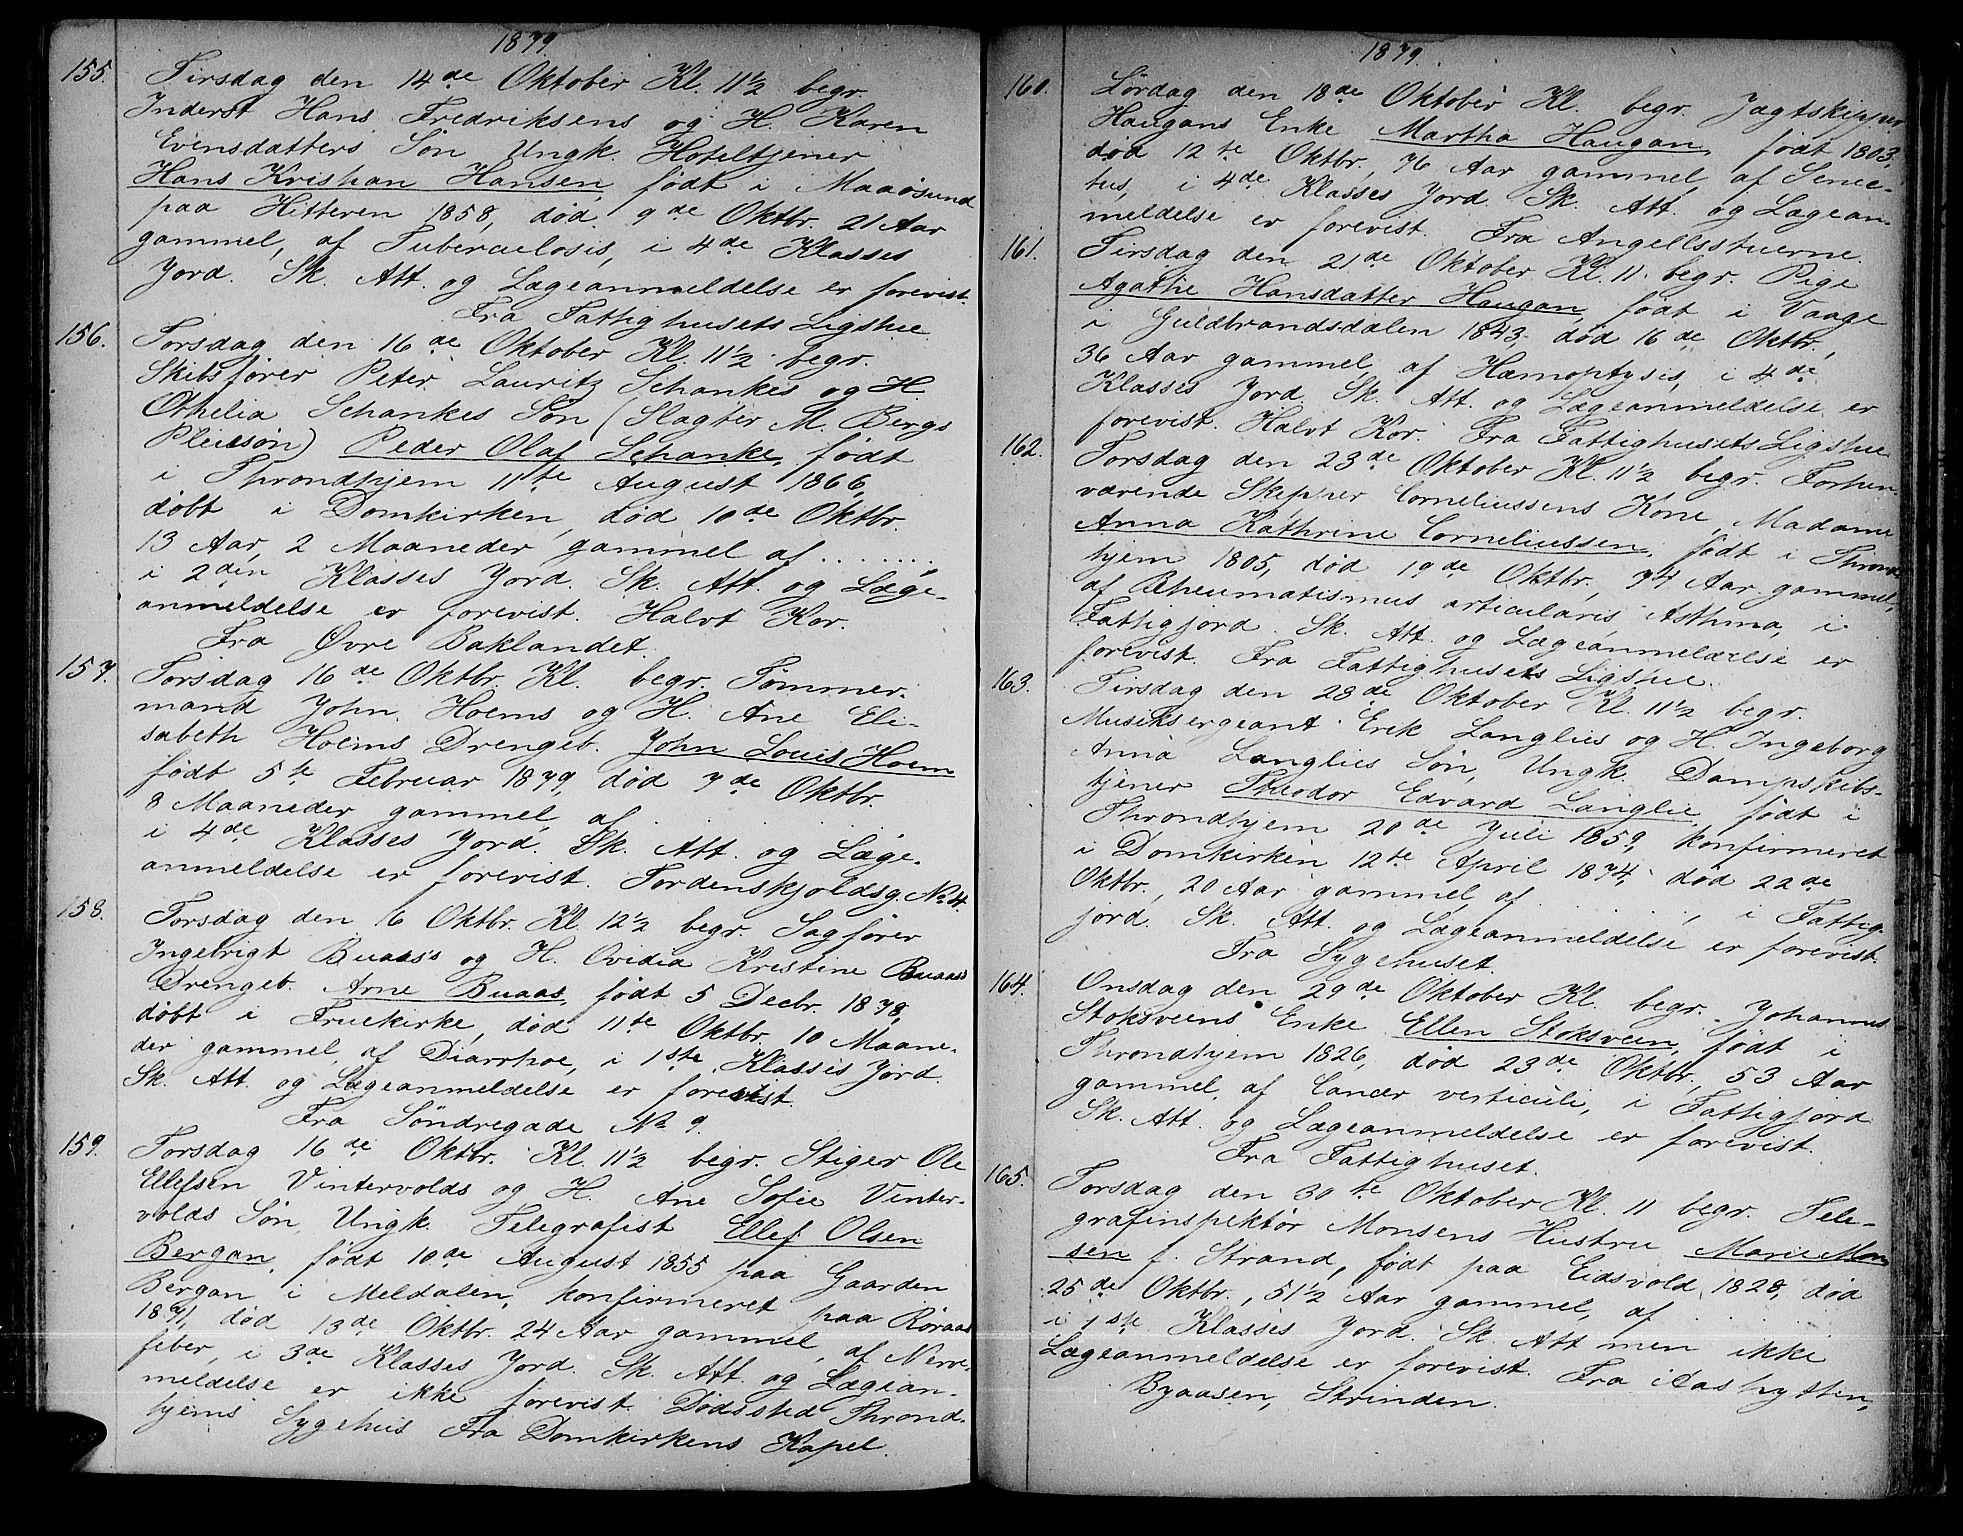 1879.
155. Tirsdag den 14de Oktober Kl. 11½ begr.
Inderst Hans Fredriksens og H. Karen
Evensdatters Søn Ungk. Hoteltjener
Hans Kristian Hansen, født i Maøsund
paa Hitteren 1858, død 9de Oktbr. 21 Aar
gammel, af Tuberculosis, i 4de Klasses
Jord. Sk. Att. og Lægeanmeldelse er forevist.
Fra Fattighusets Ligstue
156. Torsdag den 16de Oktober Kl. 11½ begr.
Skibsfører Peter Lauritz Schankes og H.
Othelia Schankes Søn (Slagter M. Bergs
Pleiesøn) Peder Olaf Schanke, født
i Throndhjem 11te August 1866,
døbt i Domkirken, død 10de Oktbr.
13 Aar, 2 Maaneder gammel af ........
i 2den Klasses Jord. Sk. Att. og Læge-
anmeldelse er forevist. Halvt Kor.
Fra Øvre Baklandet.
157. Torsdag 16de Oktbr. Kl. begr. Tømmer-
mand John Hoems og H. Ane Eli-
sabeth Hoems Drengeb. John Louis Hoem
født 5te Februar 1879, død 7de Oktbr.
8 Maaneder gammel, af . . . .
i 4de Klasses Jord. Sk. Att. og Læge-
anmeldelse er forevist. Tordenskjoldsg. No 4.
158. Torsdag den 16 Oktbr. Kl. 12½ begr. Sagfører
Ingebrigt Buaas's og H. Ovidia Kristine Buaas
Drengeb. Arne Buaas, født 5 Decbr. 1878,
døbt i Fruekirke, død 11te Oktbr. 10 Maane-
der gammel, af Diarrhoe, i 1ste Klasses Jord.
Sk. Att. og Lægeanmeldelse er forevist.
Fra Søndregade No 9.
159. Torsdag 16de Oktbr. Kl. 11½ begr. Stiger Ole
Ellefsen Vintervolds og H. Ane Sofie Vinter-
volds Søn, Ungk. Telegrafist Ellef Olsen
Bergan, født 10de August 1855 paa Gaarden
Bergan i Meldalen, konfirmeret paa Røraas
18 71, død 13de Oktbr. 24 Aar gammel, af Nerve-
feber, i 3de Klasses Jord. Sk. Att. og Lægean-
meldelse er ikke forevist. Dødssted Thrond-
hjems Sygehus Fra Domkirkens Kapel.
1879.
160. Lørdag den 18de Oktober Kl. begr. Jagtskipper
Haugans Enke Martha Haugan, født 1803,
død 12te Oktbr., 76 Aar gammel, af Senec-
tus, i 4de Klasses Jord. Sk. Att. og Lægean-
meldelse er forevist. Fra Angellsstuerne.
161. Tirsdag den 21de Oktober Kl. 11. begr. Pige
Agathe Hansdatter Haugan født i Vaage
i Guldbrandsdalen 1843, død 16de Oktbr.,
36 Aar gammel, af Hæmoptysis, i 4de
Klasses Jord. Sk. Att. og Lægeanmeldelse er
forevist. Halvt Kor. Fra Fattighusets Ligstue
162. Torsdag den 23de Oktober Kl. 11½ begr. Forhen-
værende Skipper Corneliussens Kone, Madame
Anna Kathrine Corneliussen, født i Thrond
hjem 1805, død 19de Oktbr., 74 Aar gammel,
af Rheumatismus articularis Asthma, i
Fattigjord. Sk. Att. og Lægeanmeldelse er
forevist. Fra Fattighusets Ligstue.
163. Tirsdag den 28de Oktober Kl 11½ begr.
Musiksergeant Erik Langlies og H. Ingeborg
Anna Langlies Søn, Ungk. Dampskibs-
tjener Theodor Edvard Langlie, født i
Throndhjem 20de Juli 1859, konfirmeret
i Domkirken 12te April 1874, død 22de
Oktbr., 20 Aar gammel, af . . . . . ., i Fattig-
jord. Sk. Att. og Lægeanmeldelse er forevist.
Fra Sygehuset.
164. Onsdag den 29de Oktober Kl. begr. Johannes
Stoksveens Enke Ellen Stoksveen, født i
Throndhjem 1826, død 23de Oktbr., 53 Aar
gammel, af Cancer verticuli, i Fattigjord
Sk. Att. og Lægeanmeldelse er forevist.
Fra Fattighuset.
165. Torsdag den 30te Oktober Kl. 11 begr. Tele-
grafinspektør Monsens Hustru, Marie Mon
sen f. Strand, født paa Eidsvold, 1828, død
25de Oktbr., 51½ Aar gammel, af . . . . .
i 1ste Klasses Jord. Sk. Att. men ikke
Lægeanmeldelse er forevist. Fra Aashytten,
Byaasen, Strinden.